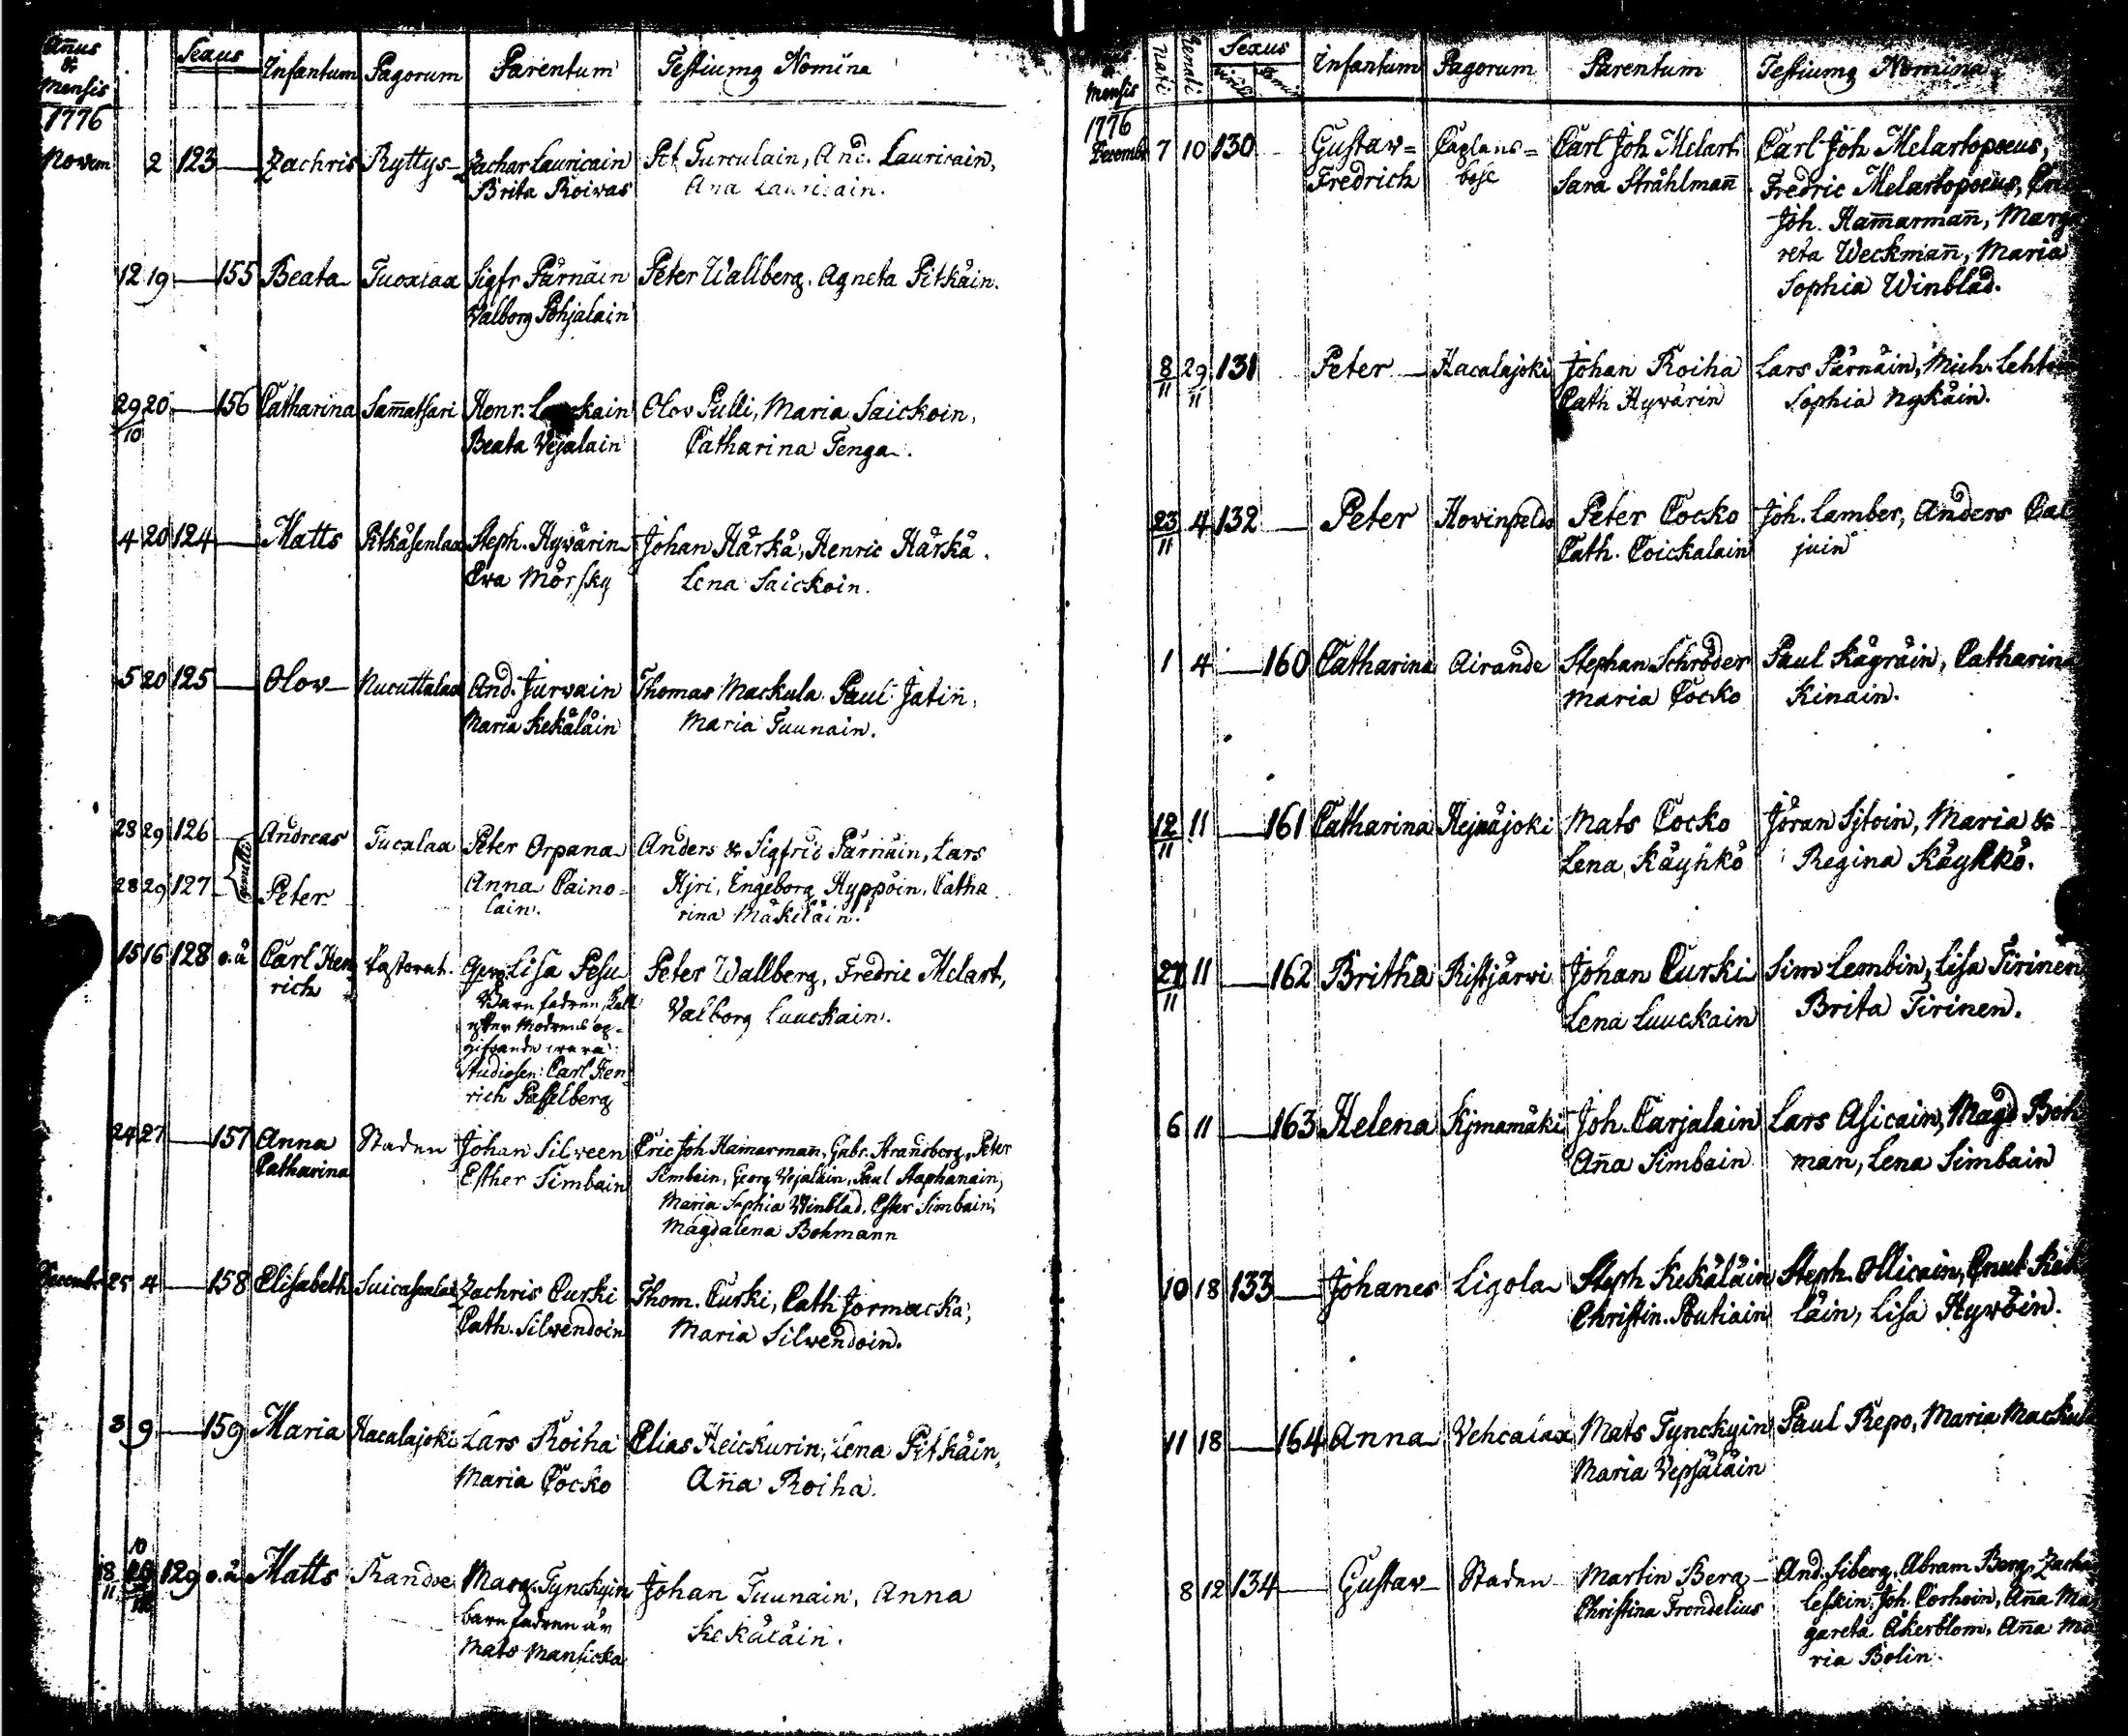 Añus & Mensis Sexus Infantum Pagorum Parentum Testiumq Nomina
1776
Novem 2 123 — Zachris Ryttys Zachar Lauricain Pet Turculain, And. Lauricain,
Brita Roivas Ana Lauricain.
12 19 — 155 Beata Tuoxlax Sigfr Pärnäin Peter Wallberg. Agneta Pitkäin.
Valborg Pohjalain
29/10 20 — 156 Catharina Sam̄atsari Henr. Olov Pulli, Maria Saickoin,
Beata Vejalain Catharina Tenga.
4 20 124 — Matts Pitkäsenlax Steph. Hyvärin Johan Härkä, Henric Härkä.
Eva Mörsky Lena Saickoin.
5 20 125 — Olov Nucuttalax And. Jurvain Thomas Mackula. Paul Jatin,
Maria Kekäläin Maria Tuunain.
28 29 126 — Andreas Tucxlax Peter Orpana Anders & Sigfrid Pärnäin, Lars
gemelli
28 29 127 — Peter Anna Caino= Hjri, Engeborg Hyppöin, Catha
lain. rina Mäkeläin.
15 16 128 o.ä Carl Hen Pastorat. Lisa Pesu Peter Wallberg, Fredric Melart,
rich Barnfadren skall Valborg Luuckain.
efter Modrens op=
gifvande wara
Studiosen: Carl Hen
rich Passelberg
24 27 — 157 Anna Staden Johan Silveen Eric Joh Hamarmañ, Gabr. Strandberg, Peter
Catharina Esther Simbain Simbain, Georg Vejalain, Paul Staphanain,
Maria Sophia Winblad, Ester Simbain,
Magdalena Bohmann
Decembr 25 4 — 158 Elisabeth Zachris Curki Thom. Curki, Cath Jormacka,
Cath. Silvendoin Maria Silvendoin.
3 9 — 159 Maria Hacalajoki Lars Roiha Elias Heickurin, Lena Pitkäin,
Maria Cocko Aña Roiha.
18/11 10 129 o.ä Matts Randve Marg. Tynckyin Johan Tuunain, Anna
barnfadren är Kekäläin.
Mats Mansicka
Mensis Nati Renati Sexus Infantum Pagorum Parentum Testiumq Nomina
1776
Decembr 7 10 130 Gustav= Caplans= Carl Joh Melart Carl Joh Melartopoeus,
Fredrich böle Sara Stråhlmañ Fredric Melartopoeus,
Joh. Ham̄armañ, Marga
reta Weckmañ, Maria
Sophia Winblad.
8/11 29/11 131 Peter — Hacalajoki Johan Roiha Lars Pärnäin, Mich. Lehto
Cath Hyvärin Sophia Nykäin.
23/11 4 132 — Peter Hovinpelds Peter Cocko Joh. Lamber, Anders Cac
Cath. Coickalain juin
1 4 — 160 Catharina Airande Stephan Schröder Paul Kägräin, Catharina
Maria Cocko Kinain.
12/11 11 — 161 Catharina Hejnäjoki Mats Cocko Jöran Sitoin, Maria &
Lena Käyhkö Regina Käyhkö.
27/11 11 — 162 Britha Ristjärvi Johan Curki Sim Lembin, Lisa Tirinen
Lena Luuckain Brita Tirinen.
6 11 — 163 Helena Kjmamäki Joh. Carjalain Lars Asicain, Magd Boh
Aña Simbain man, Lena Simbain
10 18 133 — Johanes Ligola Steph Kekäläin Steph. Ollicain, Cnut Kek
Christin. Poutiain läin, Lisa Hyvöin.
11 18 — 164 Anna Vehcalax Mats Tynckyin Paul Repo, Maria Mackul
Maria Vepsäläin
8 12 134 — Gustav Staden Martin Berg And. Siberg, Abram Berg, Zachris
Christina Trondelius Leskin, Joh. Corhoin, Aña Mar
gareta Åkerblom, Aña Ma
ria Bolin.